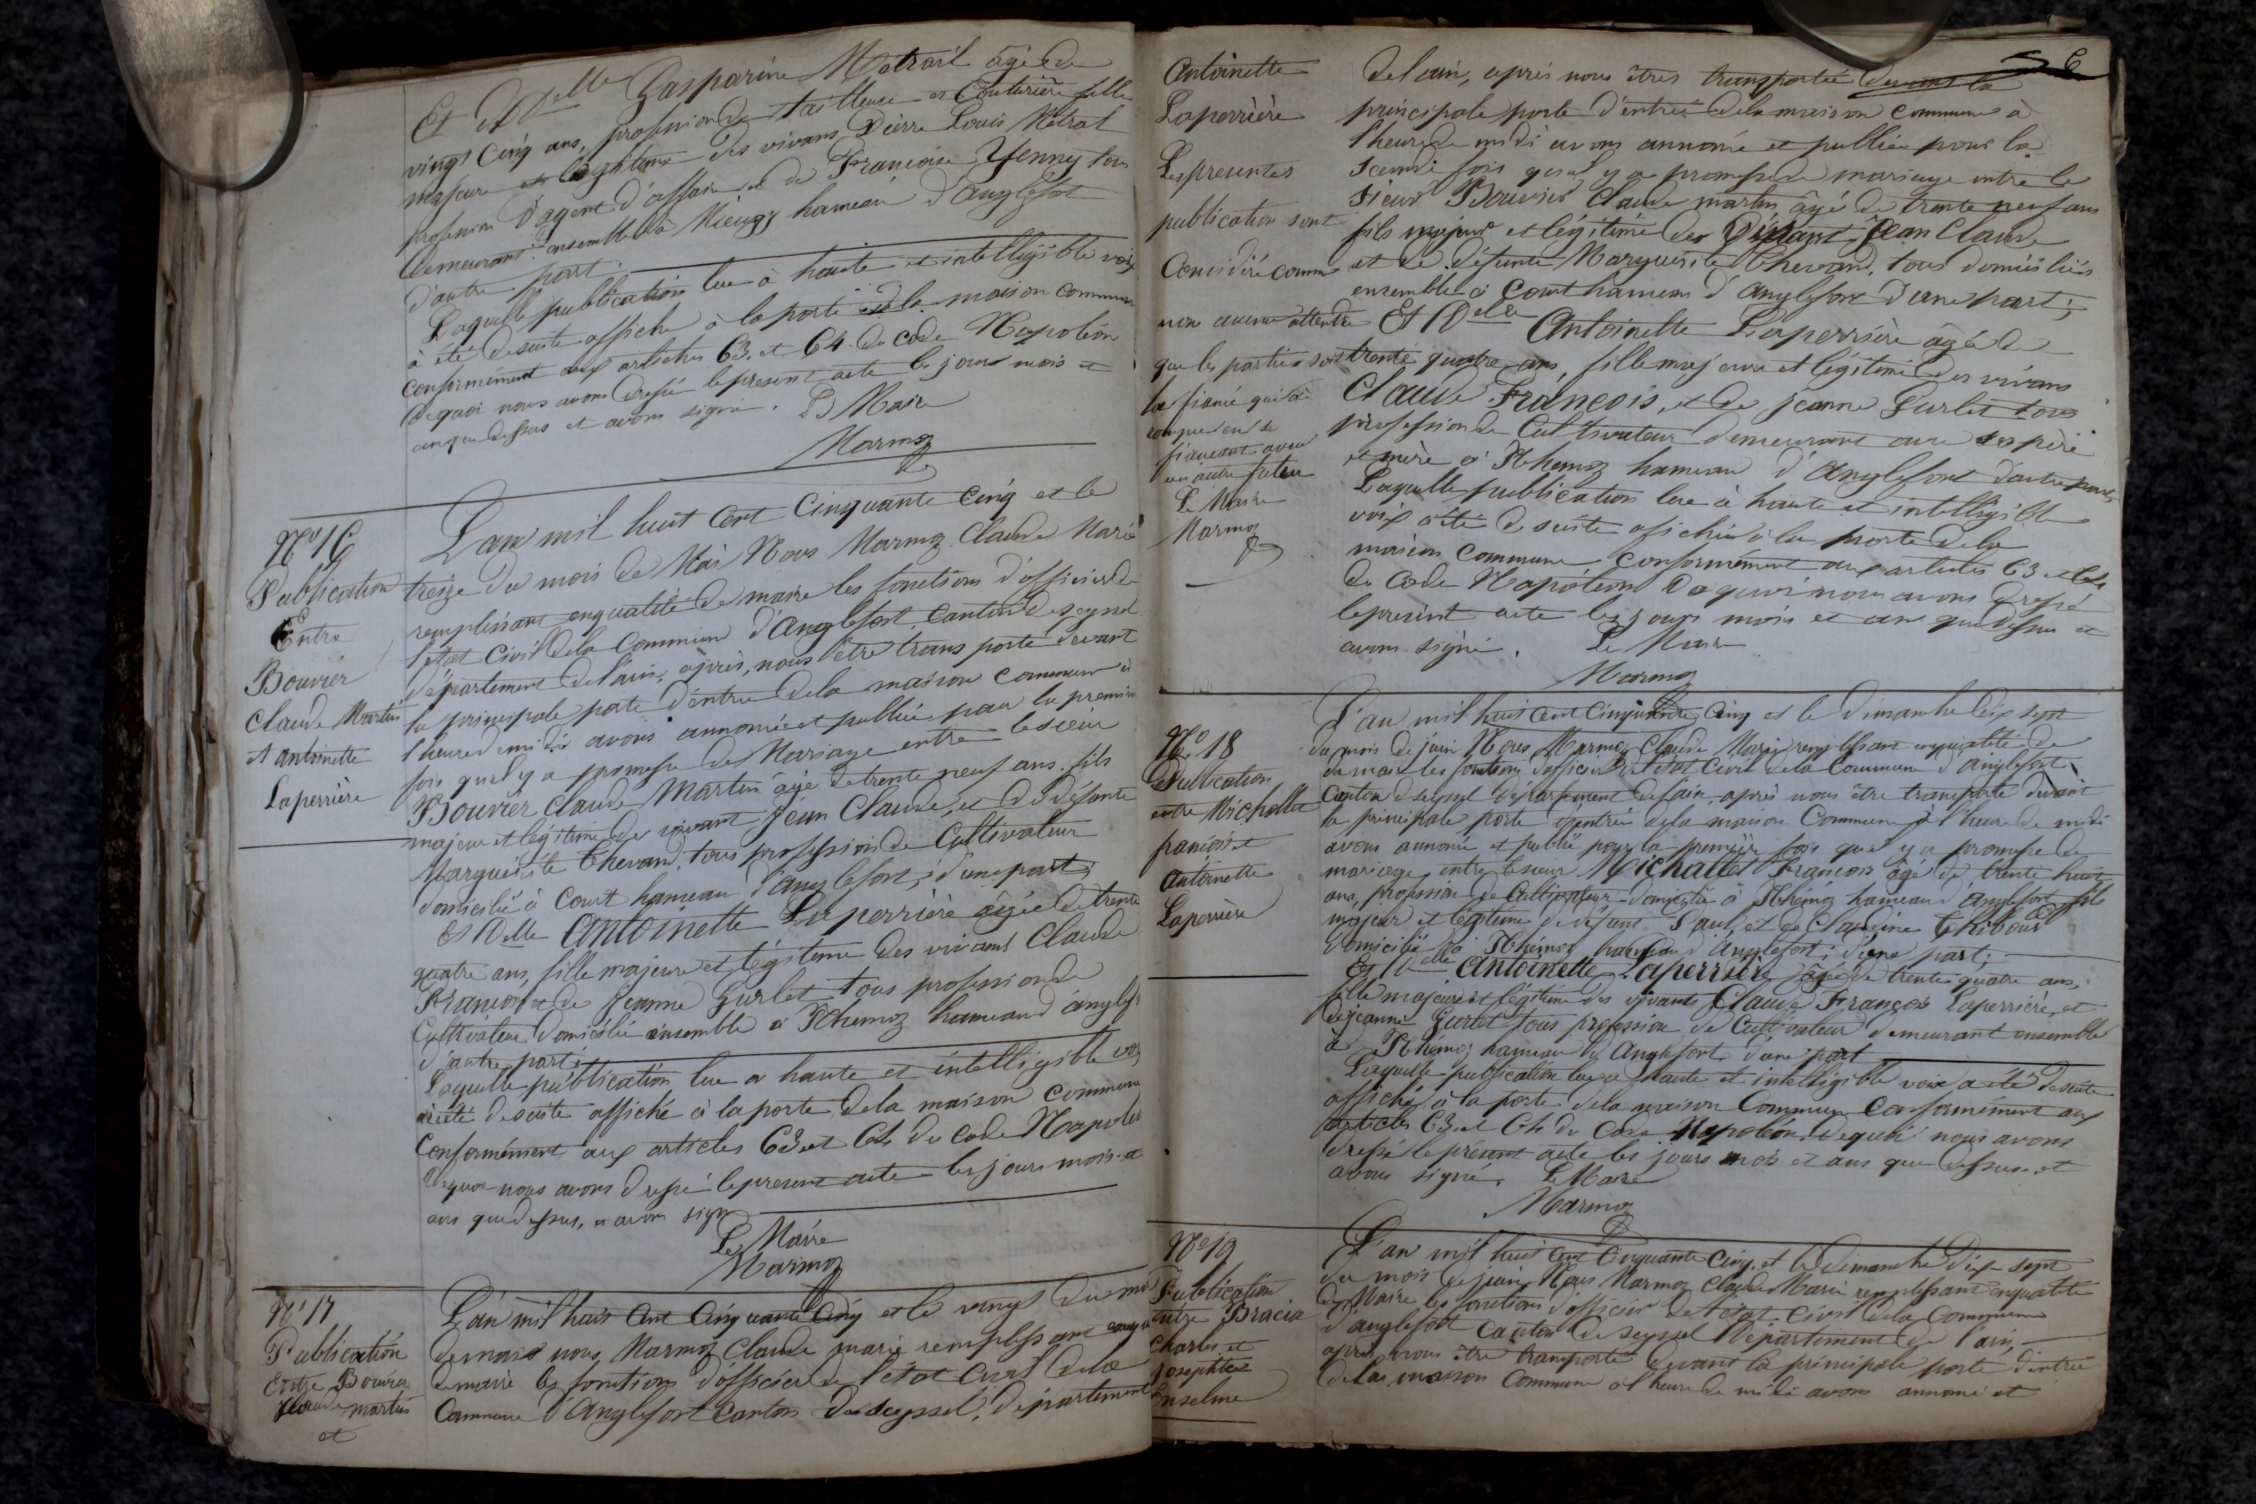 Et Delle Gasparine Métrail âgée de
vingt cinq ans, profession de tailleuse et Couturière fille
majeure et légitime des vivans Pierre Louis Métrat
profession d'agent d'affaire et de Françoise Yenny tous
demeurant ensemble à Mieugy hameau d'anglefort
d'autre part.
Laquelle publication lue à haute et intelligible voix
à été desuite affiché à la porte de la maison commune
conformément aux articles 63 et 64 du code Napoléon
de quoi nous avons dressé le present acte les jours mois et
an que dessus et avons signé. Le Maire
Marmoz
No 16
Publication
Entre
Bouvier
Claude Martin
et antoinette
Laperrière
L'an mil huit cent cinquante cinq et le
treize du mois de Mai Nous Marmoz Claude Marie
remplissant enqualité de maire les fonctions d'officier de
l'état civil dela Commune d'anglefort, canton de seyssel
département del'ain, après, nous être transporté devant
la principale porte d'entrée dela maison commune à
l'heure de midi avons annoncé et publiée pour la première
fois quel y a promesse de Mariage entre le sieur
Bouvier Claude Martin âgé de trente neuf ans fils
majeur et légitime des vivant Jean Claude, et de défunte
Marguerite Chevand, tous profession de Cultivateur
domicilié à Court hameau d'anglefort, d'une part;
Et Delle Antoinette Laperrière âgée de trente
quatre ans, fille majeure et légitime des vivans Claude
François et de Jeanne Gurlet tous profession de
Cultivateur domicilié ensemble à Rhemoz hameau d'anglefort
d'autre part;
Laquelle publication lue a haute et intelligible voix
a été desuite affiché à la porte dela maison commune
conformément aux articles 63 et 64 du code Napoléon
de quoi nous avons dressé le present acte les jours mois et
ans que dessus, et avons signé
Le Maire
Marmoz
No 17
Publication
Entre Bouvier
Claude martin
et
L'an mil huit cent cinquante cinq et le vingt du mois
demai nous Marmoz Claude marie remplissant enqualité
de maire les fonctions d'officier de l'état civil dela
Commune d'Anglefort canton de seyssel, département
Antoinette
Laperrière
Les presentes
publication sont
Considéré comme
non avenue attendu
que les parties sont
la fiancé qui a
rompu en se
fiancent avec
un autre futeur
Le Maire
Marmoz
6
del'ain, après nous êtres transportée devant la
principale porte d'entrée dela maison commune à
l'heure de midi avons annoncé et publiée pour la
seconde fois quel y a promesse de mariage entre le
sieur Bouvier Claude martin âgé de trente neuf ans
fils majeur et légitime des vivant Jean Claude
et de défunte Marguerite Chevand, tous domiciliés
ensemble à Court hameau d'Anglefort d'une part;
Et Delle Antoinette Laperrière âgé de
trente quatre ans, fille majeure et légitime des vivans
Claude François, et de jeanne Gurlet tous
profession de Cultivateur demeurant avec ses père
et mère à Rhemoz hameau d'Anglefort d'autre part;
Laquelle publication lue à haute et intelligible
voix a été desuite affichée à la porte dela
maison commune conformément aux articles 63 et 64
du code Napoléon Dequoi nous avons dressé
le présent acte les jours mois et an que dessus et
avons signé. Le Maire
Marmoz
No 18
Publication
entre Michallet
françois et
Antoinette
Laperrière
L'an mil huit cent cinquante cinq et le dimanche dix sept
du mois de juin Nous Marmoz Claude Marie remplissant enqualité de
de maire les fonctions d'officier de l'état civil dela Commune d'Anglefort
Canton de seyssel département del'ain, après nous être transporté devant
la principale porte d'entrée dela maison Commune à l'heure de midi
avons annoncé et publié pour la première fois quel y a promesse de
mariage entre le sieur Michallet François âgé de trente huit
ans, profession de Cultivateur domicilié à Rhémoz hameau d'Anglefort, fils
majeur et légitime de défunt Paul, et de Claudine Thiboud
domiciliés à Rhémoz hameau d'anglefort; d'une part;
Et Delle Antoinette Laperrière âgée de trente quatre ans,
fille majeure et légitime des vivants Claude François Laperrière, et
de jeanne Gurlet tous profession de Cultivateur demeurant ensemble
à Rhémoz hameau d'Anglefort d'une part
Laquelle publication lue à haute et intelligible voix a été desuite
affiché à la porte dela maison Commune Conformément aux
articles 63 et 64 du Code Napoléon, dequoi nous avons
dressé le présent acte les jours mois et ans que dessus et
avons signé. Le Maire
Marmoz
No 19
Publication
entre Bracia
Charles, et
josephtée
Anselme
L'an mil huit cent cinquante cinq, et le dimanche dix sept
du mois de juin Nous Marmoz Claude Marie remplissant enqualité
de Maire les fonctions d'officier de l'état civil dela Commune
d'anglefort canton de seyssel département de l'ain,
après nous être transporté devant la principale porte d'entrée
dela maison Commune à l'heure de midi avons annoncé et